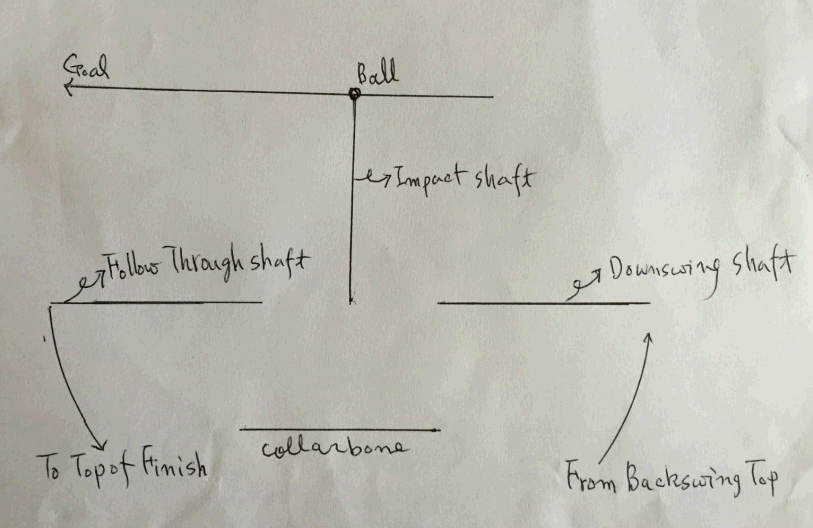 Goal
Ball
Impact shaft
Follow Through shaft
Downswing shaft
collarbone
To Top of Finish
From Backswing Top